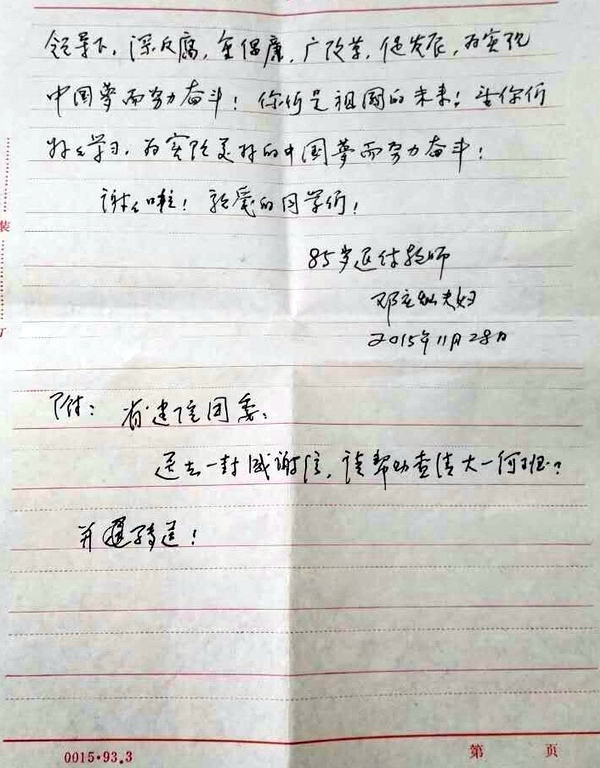 领导下,深反腐,全保廉,广改革,促发展,为实现
中国夢而努力奋斗!你们是祖國的未来!望你们
好好学习,为实现美好的中国夢而努力奋斗!
谢谢啦!親爱的同学们!
85岁退休教师
邓 夫妇
2015年11月28日
附:省建院团委:
送去一封感谢信,请帮助查清大一何班?
并 转送!
装
订
0015·93.3
第 页